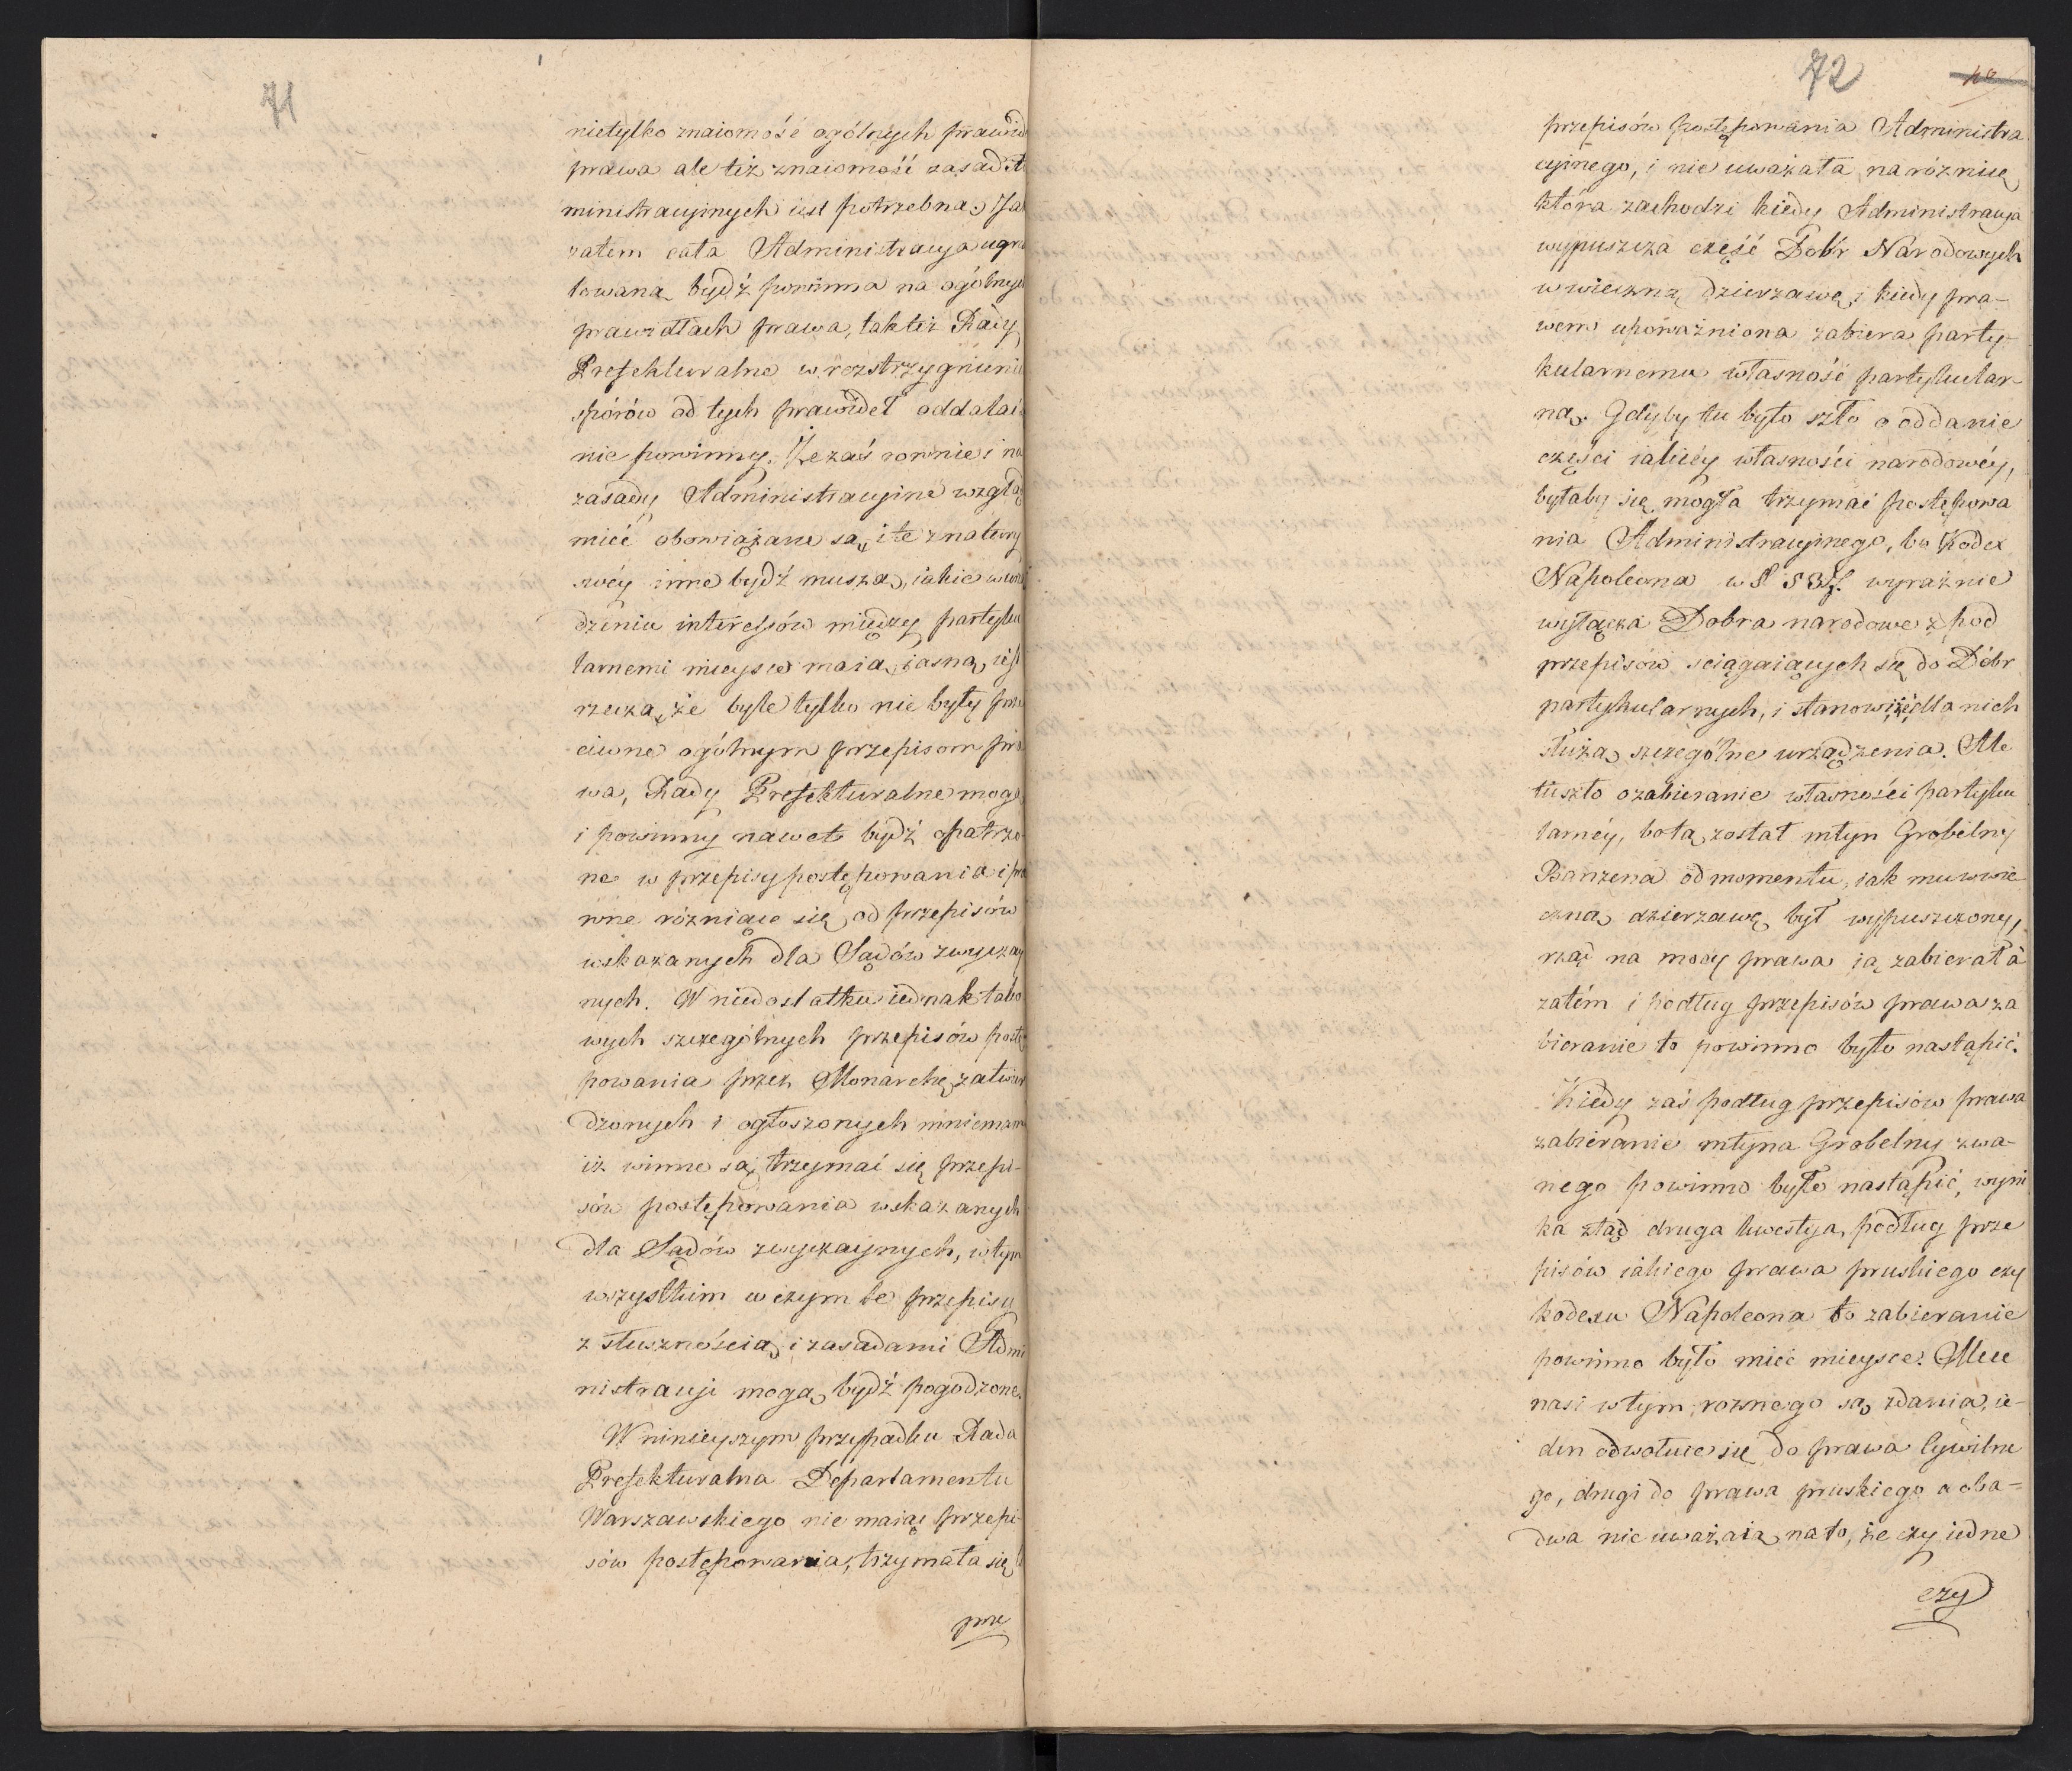 71
nietylko znaiomość ogólnych prawid
prawa ale też znaiomość zasad A
ministracyinych iest potrzebna. Jak
zatem cała Administracya ugru
towana bydź powinna na ogólnych
prawidłach prawa, takteż Rady
Prefekturalne w rozstrzygnieniu
sporów od tych prawideł oddalać
nie powinny. Że zaś rownie i na
zasady Administracyine wzgląd
mieć obowiązane są, i te z natury
swéy inne bydź muszą, iakie w
dzeniu interessów między partyku
larnemi mieysce maią, iasną iest
rzeczą, że byle tylko nie były prze
ciwne ogólnym przepisom pra
wa, Rady Prefekturalne mogą
i powinny nawet bydź opatrzo
ne w przepisy postępowania i
wne rózniące się od przepisów
wskazanych dla Sądów zwyczay
nych. W niedostatku iednak tako
wych szczególnych przepisów postę
powania przez Monarchę zatwier
dzonych i ogłoszonych mniemam
iż winne są trzymać się przepi-
sów postępowania wskazanych
dla Sądów zwyczaynych, w tym
wszystkim w czym te przepisy
z słusznością i zasadami Admi
nistracyi mogą bydź pogodzone.
W ninieyszym przypadku Rada
Prefekturalna Departamentu
Warszawskiego nie maiąc przepi-
sów postępowania, trzymała się
prze
72
przepisów postępowania Administra
cyinego, i nie uważała na róznicę
która zachodzi kiedy Administracya
wypuszcza część Dobr Narodowych
w wieczną dzierzawę, i kiedy pra-
wem upoważniona zabiera party-
kularnemu własność partykular-
ną. Gdyby tu było szło o oddanie
części iakiéy własności narodowéy,
byłaby się mogła trzymać postępowa
nia Administracyinego, bo Kodex
Napoleona w § 537. wyraźnie
wyłącza Dobra narodowe z pod
przepisów sciągaiących się do Dóbr
partykularnych, i stanowi, że dla nich
służą szczególne urządzenia. Ale
tu szło o zabieranie własności partyku
larnéy, bo tą został młyn Grobelny
Banzena od momentu, iak mu w wie
czną dzierzawę był wypuszczony,
rząd na mocy prawa ią zabierał à
zatém i podług przepisów prawa za
bieranie to powinno było nastąpić.
Kiedy zaś podług przepisów prawa
zabieranie młyna Grobelny zwa-
nego powinno było nastąpić, wyni
ka ztąd druga kwestya, podług prze
pisów iakiego prawa pruskiego czy
kodexu Napoleona to zabieranie
powinno było mieć mieysce. Mece
nasi w tym roznego są zdania, ie-
den odwołuie się do prawa Cywilne
go, drugi do prawa pruskiego a oba-
dwa nie uważaią na to, że czy iedne
czy